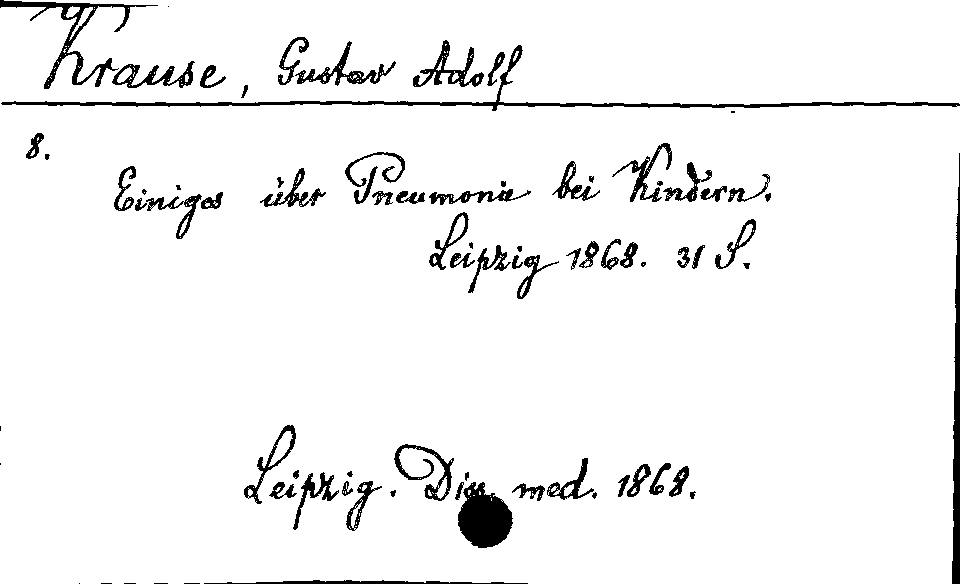 Krause, Gustav Adolf
8.
Einiges über Pneumonie bei Kindern.
Leipzig 1868. 31 S.
Leipzig. Diss. med. 1868.